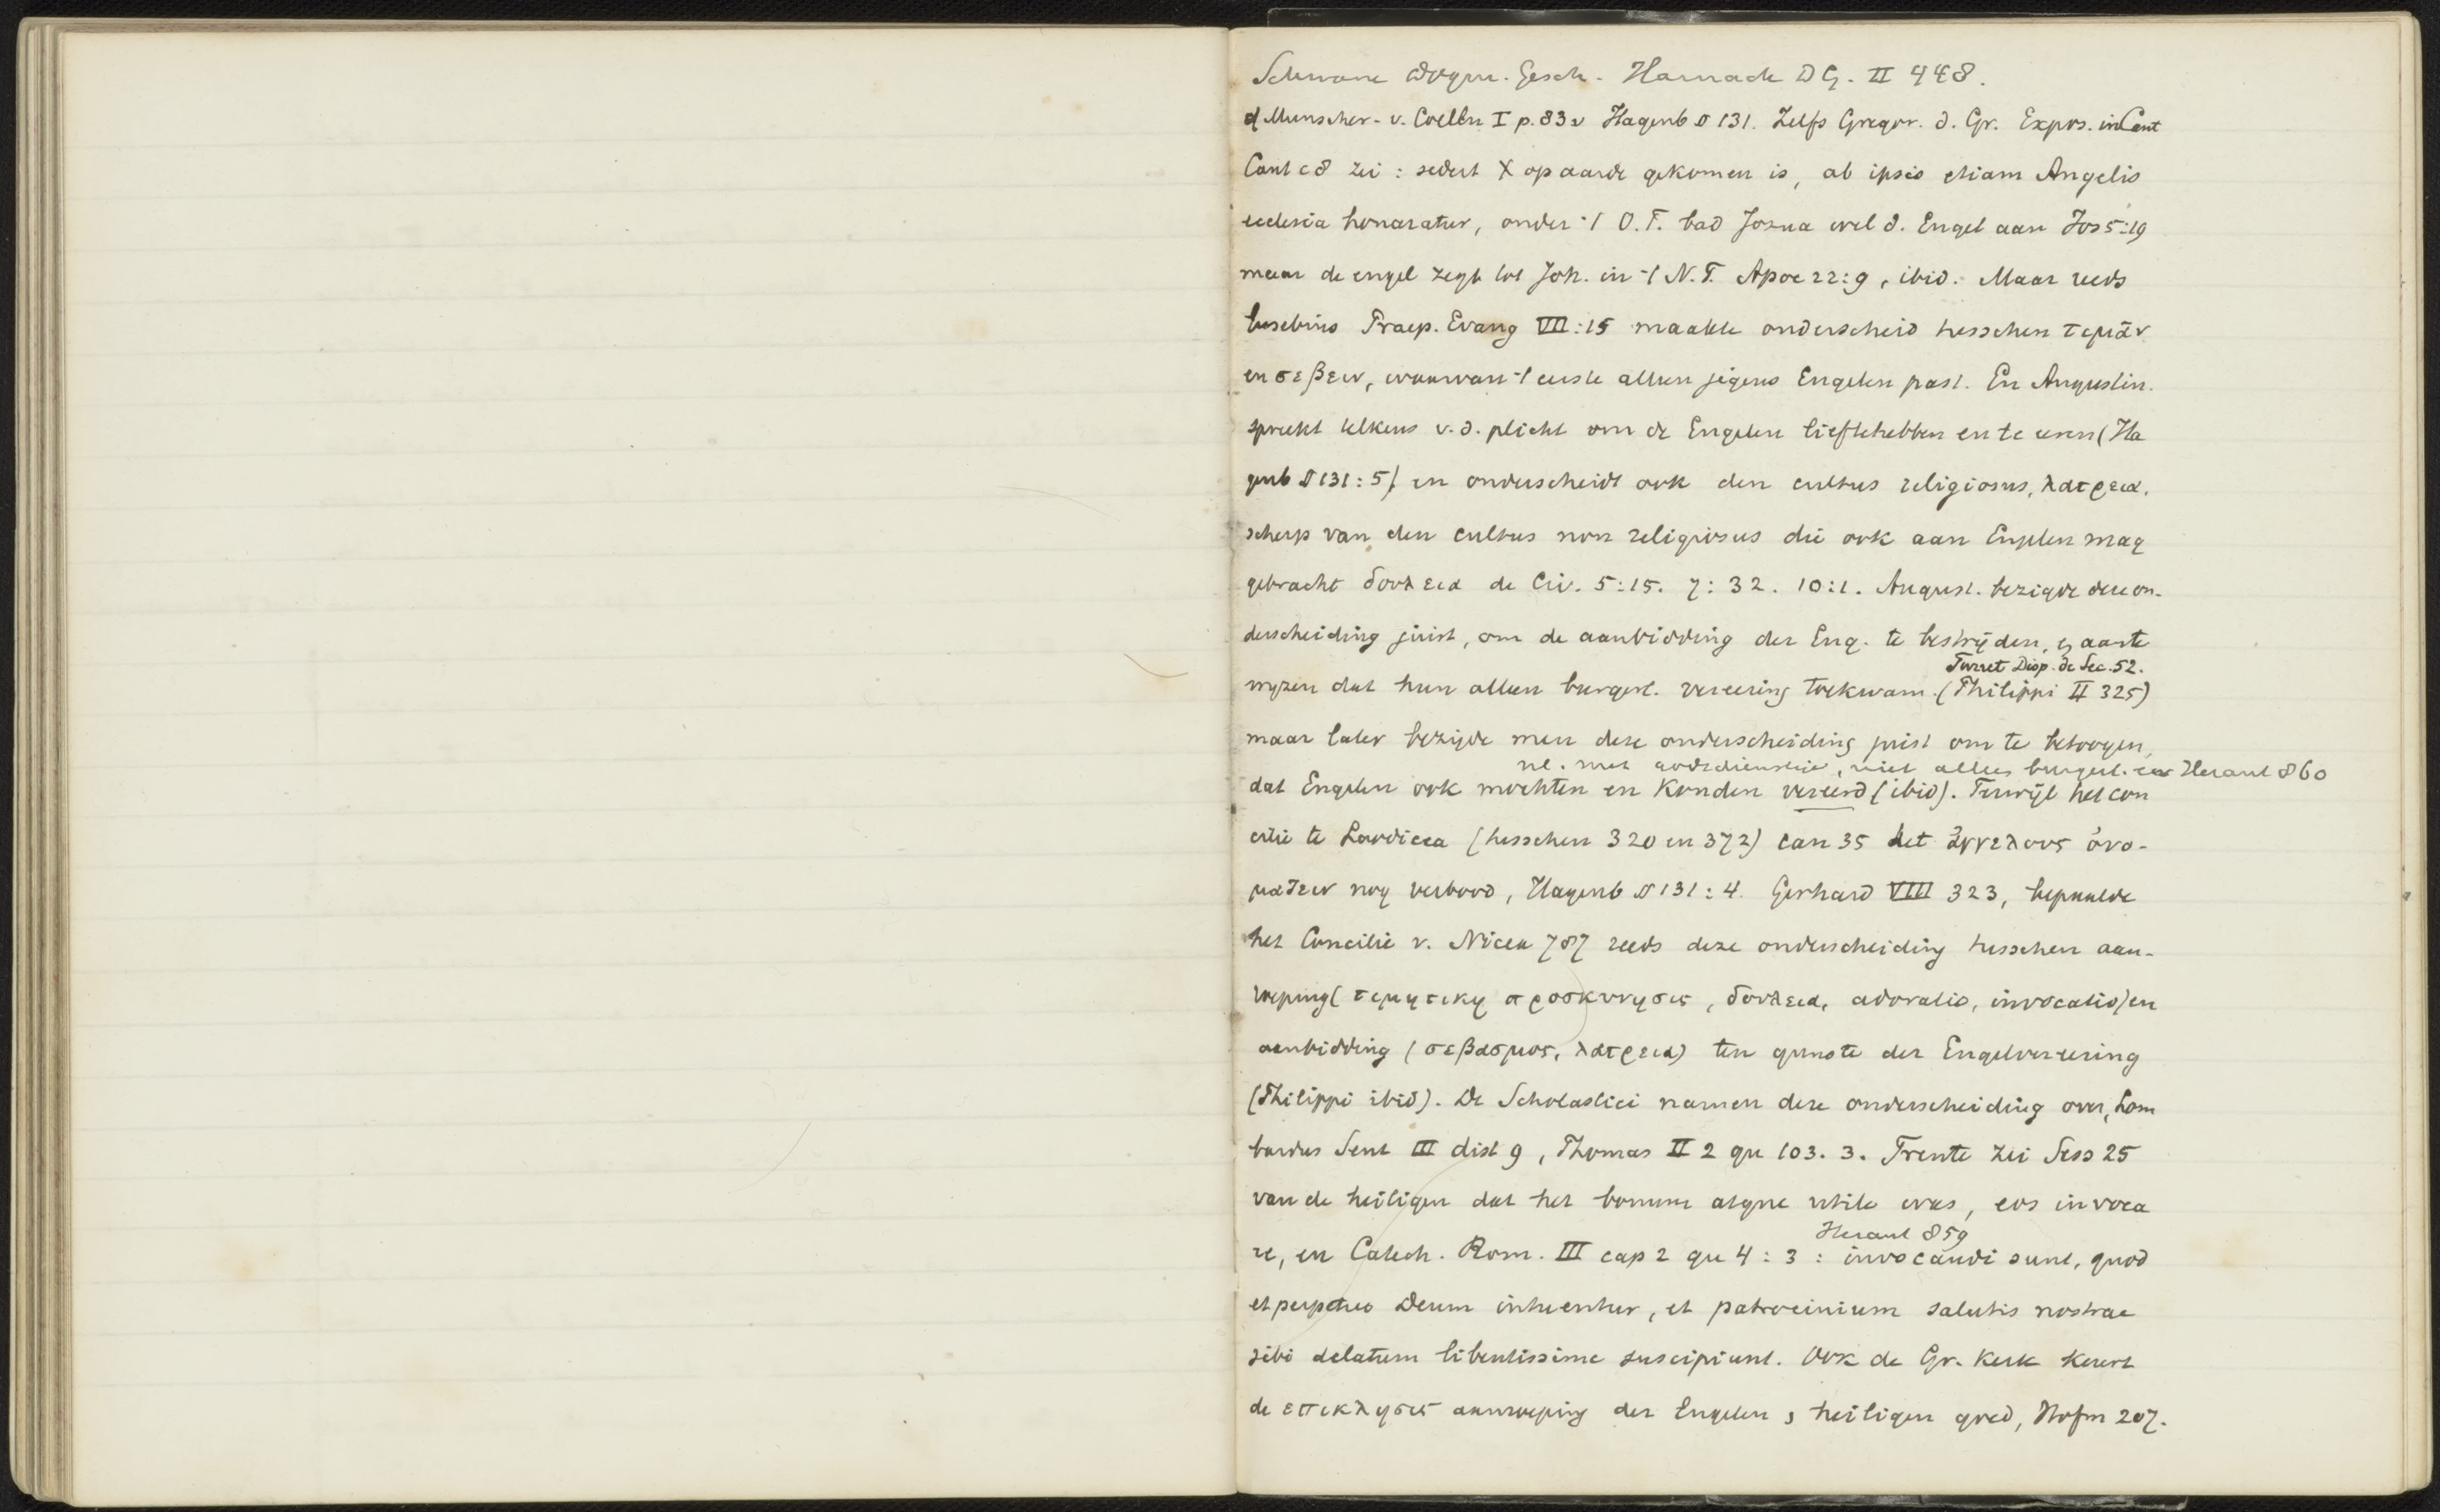 Schwane Dogm. Gesch. Harnack D G. II 448.
cf Munscher - v. Coelln I p. 83v Hagenb § 131. Zelfs Gregor. d. Gr. Expos. in Cant
Cant c 8 zei : sedert X op aarde gekomen is, ab ipsis etiam Angelis
ecclesia honoratur, onder 't O.T. bad Josua wel d. Engel aan Jos 5:19
maar de engel zegt tot Joh. in 't N.T. Apoc 22:9, ibid. Maar reeds
Eusebius Praep. Evang VII:15 maakte onderscheid tusschen τιμᾶν
en σεβειν, waarvan 't eerste alleen jegens Engelen past. En Augustin.
spreekt telkens v.d. plicht om de Engelen lieftehebben en te eeren (Ha
genb § 131:5) en onderscheidt ook den cultus religiosus, λατρεια,
scherp van den cultus non religiosus die ook aan Engelen mag
gebracht δουλεια de Civ. 5:15. 7:32. 10:1. August. bezigde deze on-
derscheiding juist, om de aanbidding der Eng. te bestrijden, en aante
Turret Disp. de Sec. 52.
wyzen dat hun alleen burgerl. vereering toekwam. (Philippi II 325)
maar later bezigde men deze onderscheiding juist om te betoogen,
nl. met godsdienstige, niet alleen burgerl. eer Heraut 860
dat Engelen ook mochten en konden vereerd (ibid). Terwijl het con
cilie te Laodicea (tusschen 320 en 372) can 35 het ἀγγελους ὀνο-
μαζειν nog verbood, Hagenb § 131:4. Gerhard VIII 323, bepaalde
het Concilie v. Nicea 787 reeds deze onderscheiding tusschen aan-
roeping (τιμητικη προσκυνησις, δουλεια, adoratio, invocatio) en
aanbidding (σεβασμος, λατρεια) ten gunste der Engelvereering
(Philippi ibid). De Scholastici namen deze onderscheiding over, Lom
bardus Sent III dist 9, Thomas II 2 qu 103. 3. Trente zei Sess 25
van de heiligen dat het bonum atque utile was, eos invoca
Heraut 859
re, en Catech. Rom. III cap 2 qu 4:3 : invocandi sunt, quod
et perpetuo Deum intuentur, et patrocinium salutis nostrae
sibi delatum libentissime suscipiunt. Ook de Gr. Kerk keurt
de επικλησις aanroeping der Engelen en heiligen goed, Hofm 207.